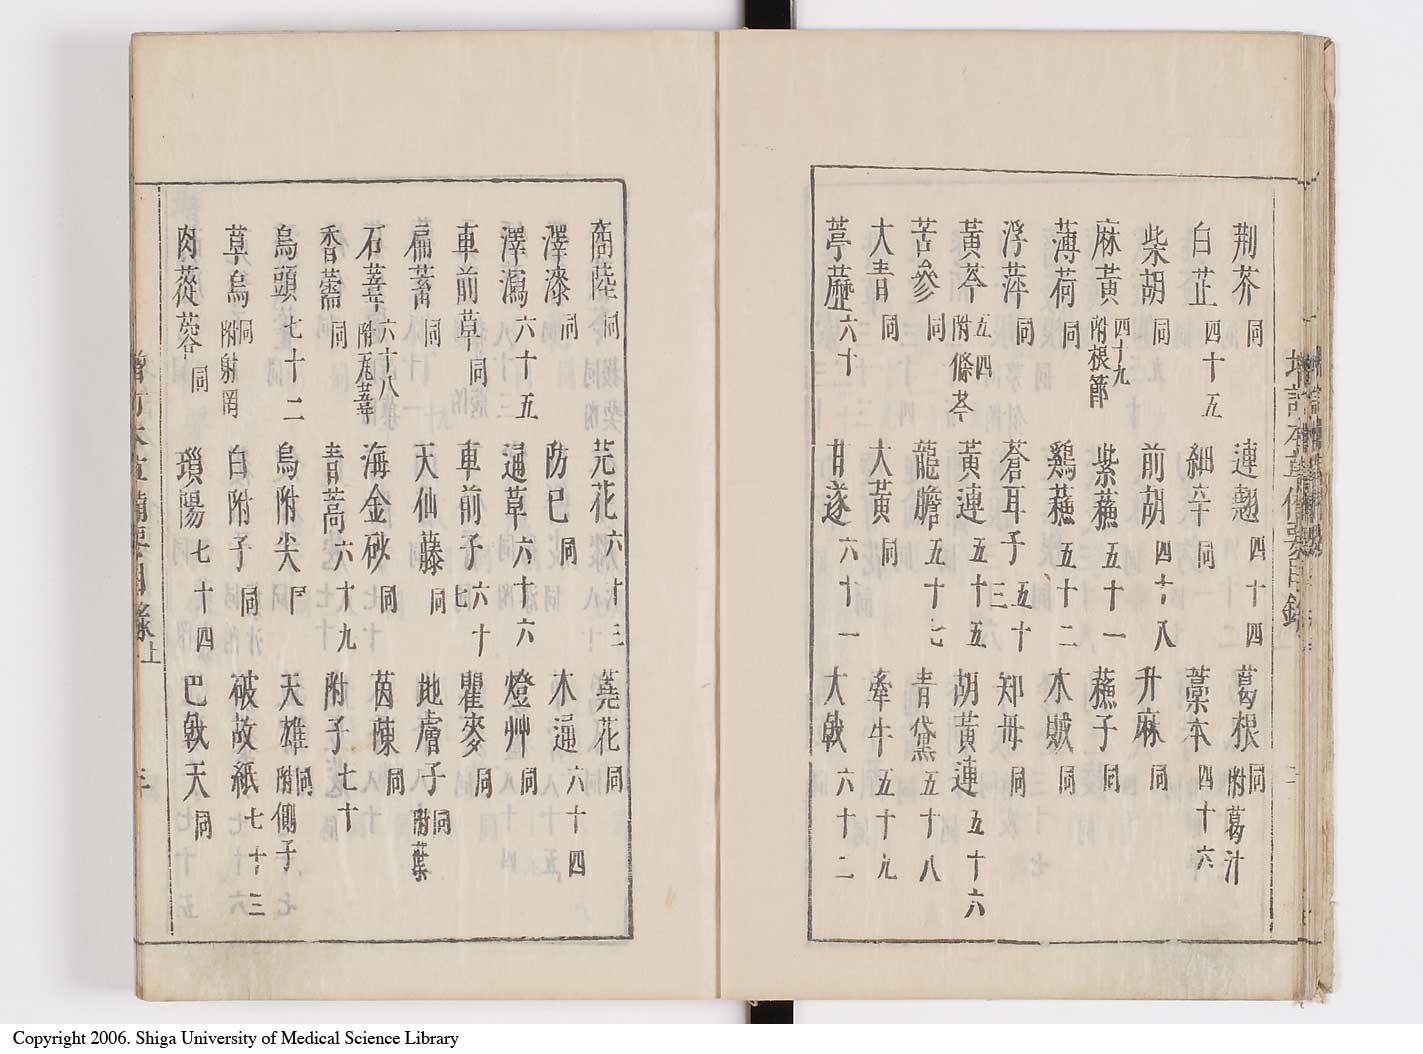 荊芥 同 連翹 四十四 葛根 同 附葛汁
白芷 四十五 細辛 同 藁本 四十六
柴胡 同 前胡 四十八 升麻 同
麻黃 四十九 附根節 紫蘓 五十一 蘓子 同
薄荷 同 鷄蘓 五十二 木賊 同
浮萍 同 蒼耳子 五十三 知母 同
黃芩 五四 附條芩 黃連 五十五 胡黃連 五十六
苦參 同 龍膽 五十七 青黛 五十八
大青 同 大黃 同 牽牛 五十九
葶藶 六十 甘遂 六十一 大戟 六十二
商陸 同 芫花 六十三 蕘花 同
澤漆 同 防已 同 木通 六十四
澤瀉 六十五 通草 六十六 燈艸 同
車前草 同 車前子 六十七 瞿麥 同
萹蓄 同 天仙藤 同 地膚子 同 附葉
石葦 六十八 附瓦葦 海金砂 同 茵蔯 同
香薷 同 青蒿 六十九 附子 七十
烏頭 七十二 烏附尖 同 天雄 同 附側子
草烏 同 附射罔 白附子 同 破故紙 七十三
肉蓯蓉 同 瑣陽 七十四 巴戟天 同
增訂本草備要目錄 上
Copyright 2006. Shiga University of Medical Science Library